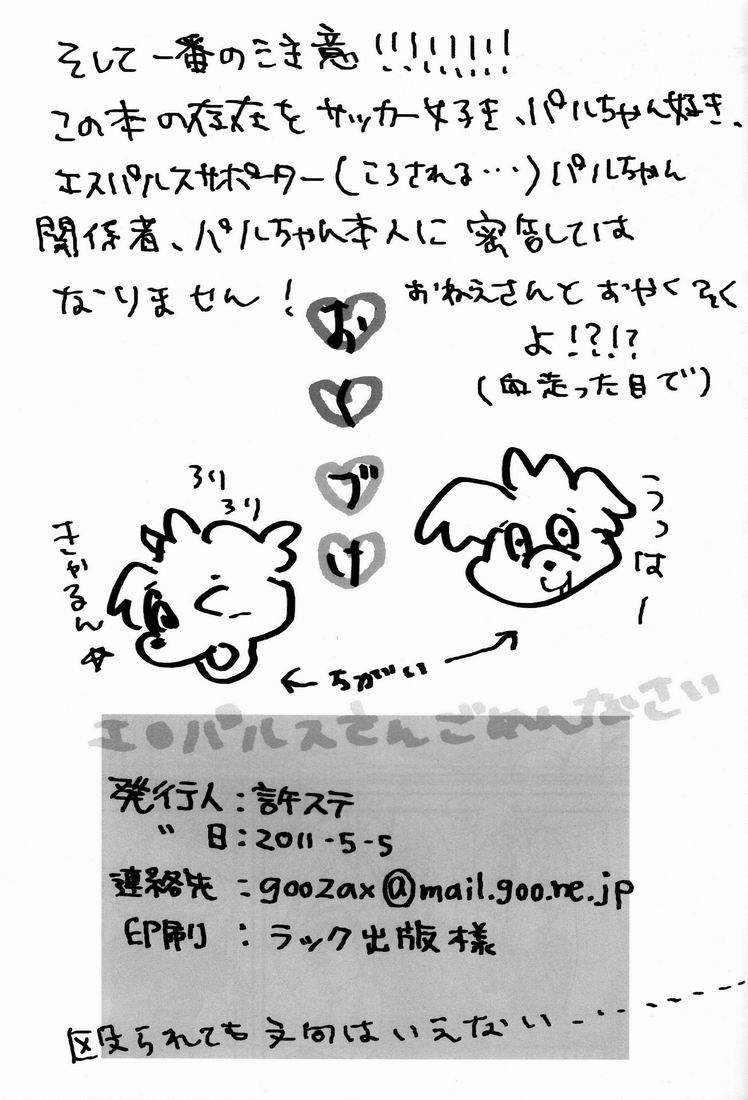 そして一番のご注意!!!!!!!!
この本の存在をサッカー好き、パルちゃん好き、
エスパルスサポーター(ころされる…)パルちゃん
関係者、パルちゃん本人に密告しては
なりません!
おねえさんとおやくそく
よ!?!?
(血走った目で)
おくづけ
ろり
ろり
きゃるん☆
うっはー
←ちがい→
エ○パルスさんごめんなさい
発行人:許ステ
〃 日:2011-5-5
連絡先:goozax@mail.goo.ne.jp
印刷:ラック出版様
殴られても文句はいえない---------